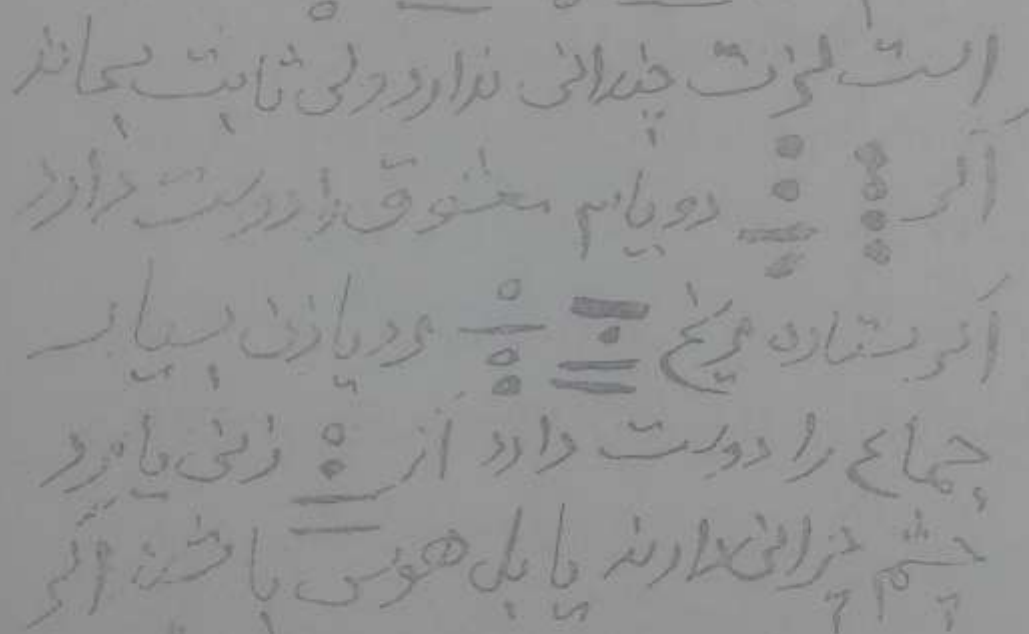 است لذت چندانی ندارد ولی ثابت بماند
اگر دو یا سه معشوق را دوست دارد
اگر ستاره مریخ مرد یا زن بسیار
جماع را دوست دارد از زنی یا مرد
چشم چرانی دارند یا بل هوس باشند اگر